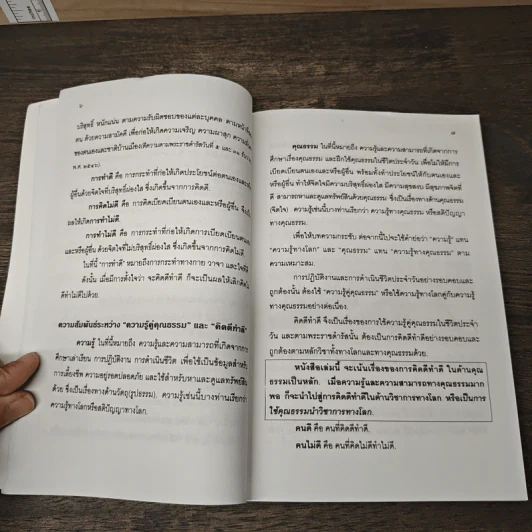 ๖
บริสุทธิ์ หนักแน่น ตามความรับผิดชอบของแต่ละบุคคล ตามหน้าที่
ตน ด้วยความสามัคดี เพื่อก่อให้เกิดความเจริญ ความผาสุก ความมั่น
ของตนเองและชาติบ้านเมือง(ตีความตามพระราชดำรัสวันที่ ๕ และ ๓๑ ธันวาคม
พ.ศ. ๒๕๔๖).
การทำดี คือ การกระทำที่ก่อให้เกิดประโยชน์ต่อตนเองและหรือ
ผู้อื่นด้วยจิตใจที่บริสุทธิ์ผ่องใส ซึ่งเกิดขึ้นจากการคิดดี.
การคิดไม่ดี คือ การคิดเบียดเบียนตนเองและหรือผู้อื่น จึงเป็น
ผลให้เกิดการทำไม่ดี.
การทำไม่ดี คือ การกระทำที่ก่อให้เกิดการเบียดเบียนตนเอง
และหรือผู้อื่น ด้วยจิตใจที่ไม่บริสุทธิ์ผ่องใส ซึ่งเกิดขึ้นจากการคิดไม่ดี.
ในที่นี้ "การทำดี" หมายถึงการกระทำทางกาย วาจา และใจที่ดี
ดังนั้น เมื่อมีการตั้งใจว่า จะคิดดีทำดี ก็จะเป็นผลให้เลิกคิดไม่ดี
ทำไม่ดีไปด้วย.
ความสัมพันธ์ระหว่าง "ความรู้คู่คุณธรรม" และ "คิดดีทำดี"
ความรู้ ในที่นี้หมายถึง ความรู้และความสามารถที่เกิดจากการ
ศึกษาเล่าเรียน การปฏิบัติงาน การดำเนินชีวิต เพื่อใช้เป็นข้อมูลสำหรับ
การเลี้ยงชีพ ความอยู่รอดปลอดภัย และใช้สำหรับหาและดูแลทรัพย์สิน
ด้วย ซึ่งเป็นเรื่องทางด้านวัตถุ(รูปธรรม). ความรู้เช่นนี้บางท่านเรียกว่า
ความรู้ทางโลกหรือสติปัญญาทางโลก.
๗
คุณธรรม ในที่นี้หมายถึง ความรู้และความสามารถที่เกิดจากการ
ศึกษาเรื่องคุณธรรม และฝึกใช้คุณธรรมในชีวิตประจำวัน เพื่อไม่ให้มีการ
เบียดเบียนตนเองและหรือผู้อื่น พร้อมทั้งทำประโยชน์ให้กับตนเองและ
หรือผู้อื่น ทำให้จิตใจมีความบริสุทธิ์ผ่องใส มีความสุขสงบ มีสุขภาพจิตดี
ดี สามารถหาและดูแลทรัพย์สินด้วยคุณธรรม ซึ่งเป็นเรื่องทางด้านคุณธรรม
(จิตใจ) ความรู้เช่นนี้บางท่านเรียกว่า ความรู้ทางคุณธรรม หรือสติปัญญา
ทางคุณธรรม.
เพื่อให้บทความกระชับ ต่อจากนี้ไปจะใช้คำย่อว่า "ความรู้" แทน
"ความรู้ทางโลก" และ "คุณธรรม" แทน "ความรู้ทางคุณธรรม" ตาม
ความเหมาะสม.
การปฏิบัติงานและการดำเนินชีวิตประจำวันอย่างรอบคอบและ
ถูกต้องนั้น ต้องใช้ "ความรู้คู่คุณธรรม" หรือใช้ความรู้ทางโลกคู่กับความรู้
ทางคุณธรรมอย่างต่อเนื่อง.
คิดดีทำดี จึงเป็นเรื่องของการใช้ความรู้คู่คุณธรรมในชีวิตประจำ
วัน และตามพระราชดำรัสนั้น ต้องเป็นการคิดดีทำดีอย่างรอบคอบและ
ถูกต้องตามหลักวิชาทั้งทางโลกและทางคุณธรรมด้วย.
หนังสือเล่มนี้ จะเน้นเรื่องของการคิดดีทำดี ในด้านคุณ
ธรรมเป็นหลัก. เมื่อความรู้และความสามารถทางคุณธรรมมาก
พอ ก็จะนำไปสู่การคิดดีทำดีในด้านวิชาการทางโลก หรือเป็นการ
ใช้คุณธรรมนำวิชาการทางโลก.
คนดี คือ คนที่คิดดีทำดี.
คนไม่ดี คือ คนที่คิดไม่ดีทำไม่ดี.